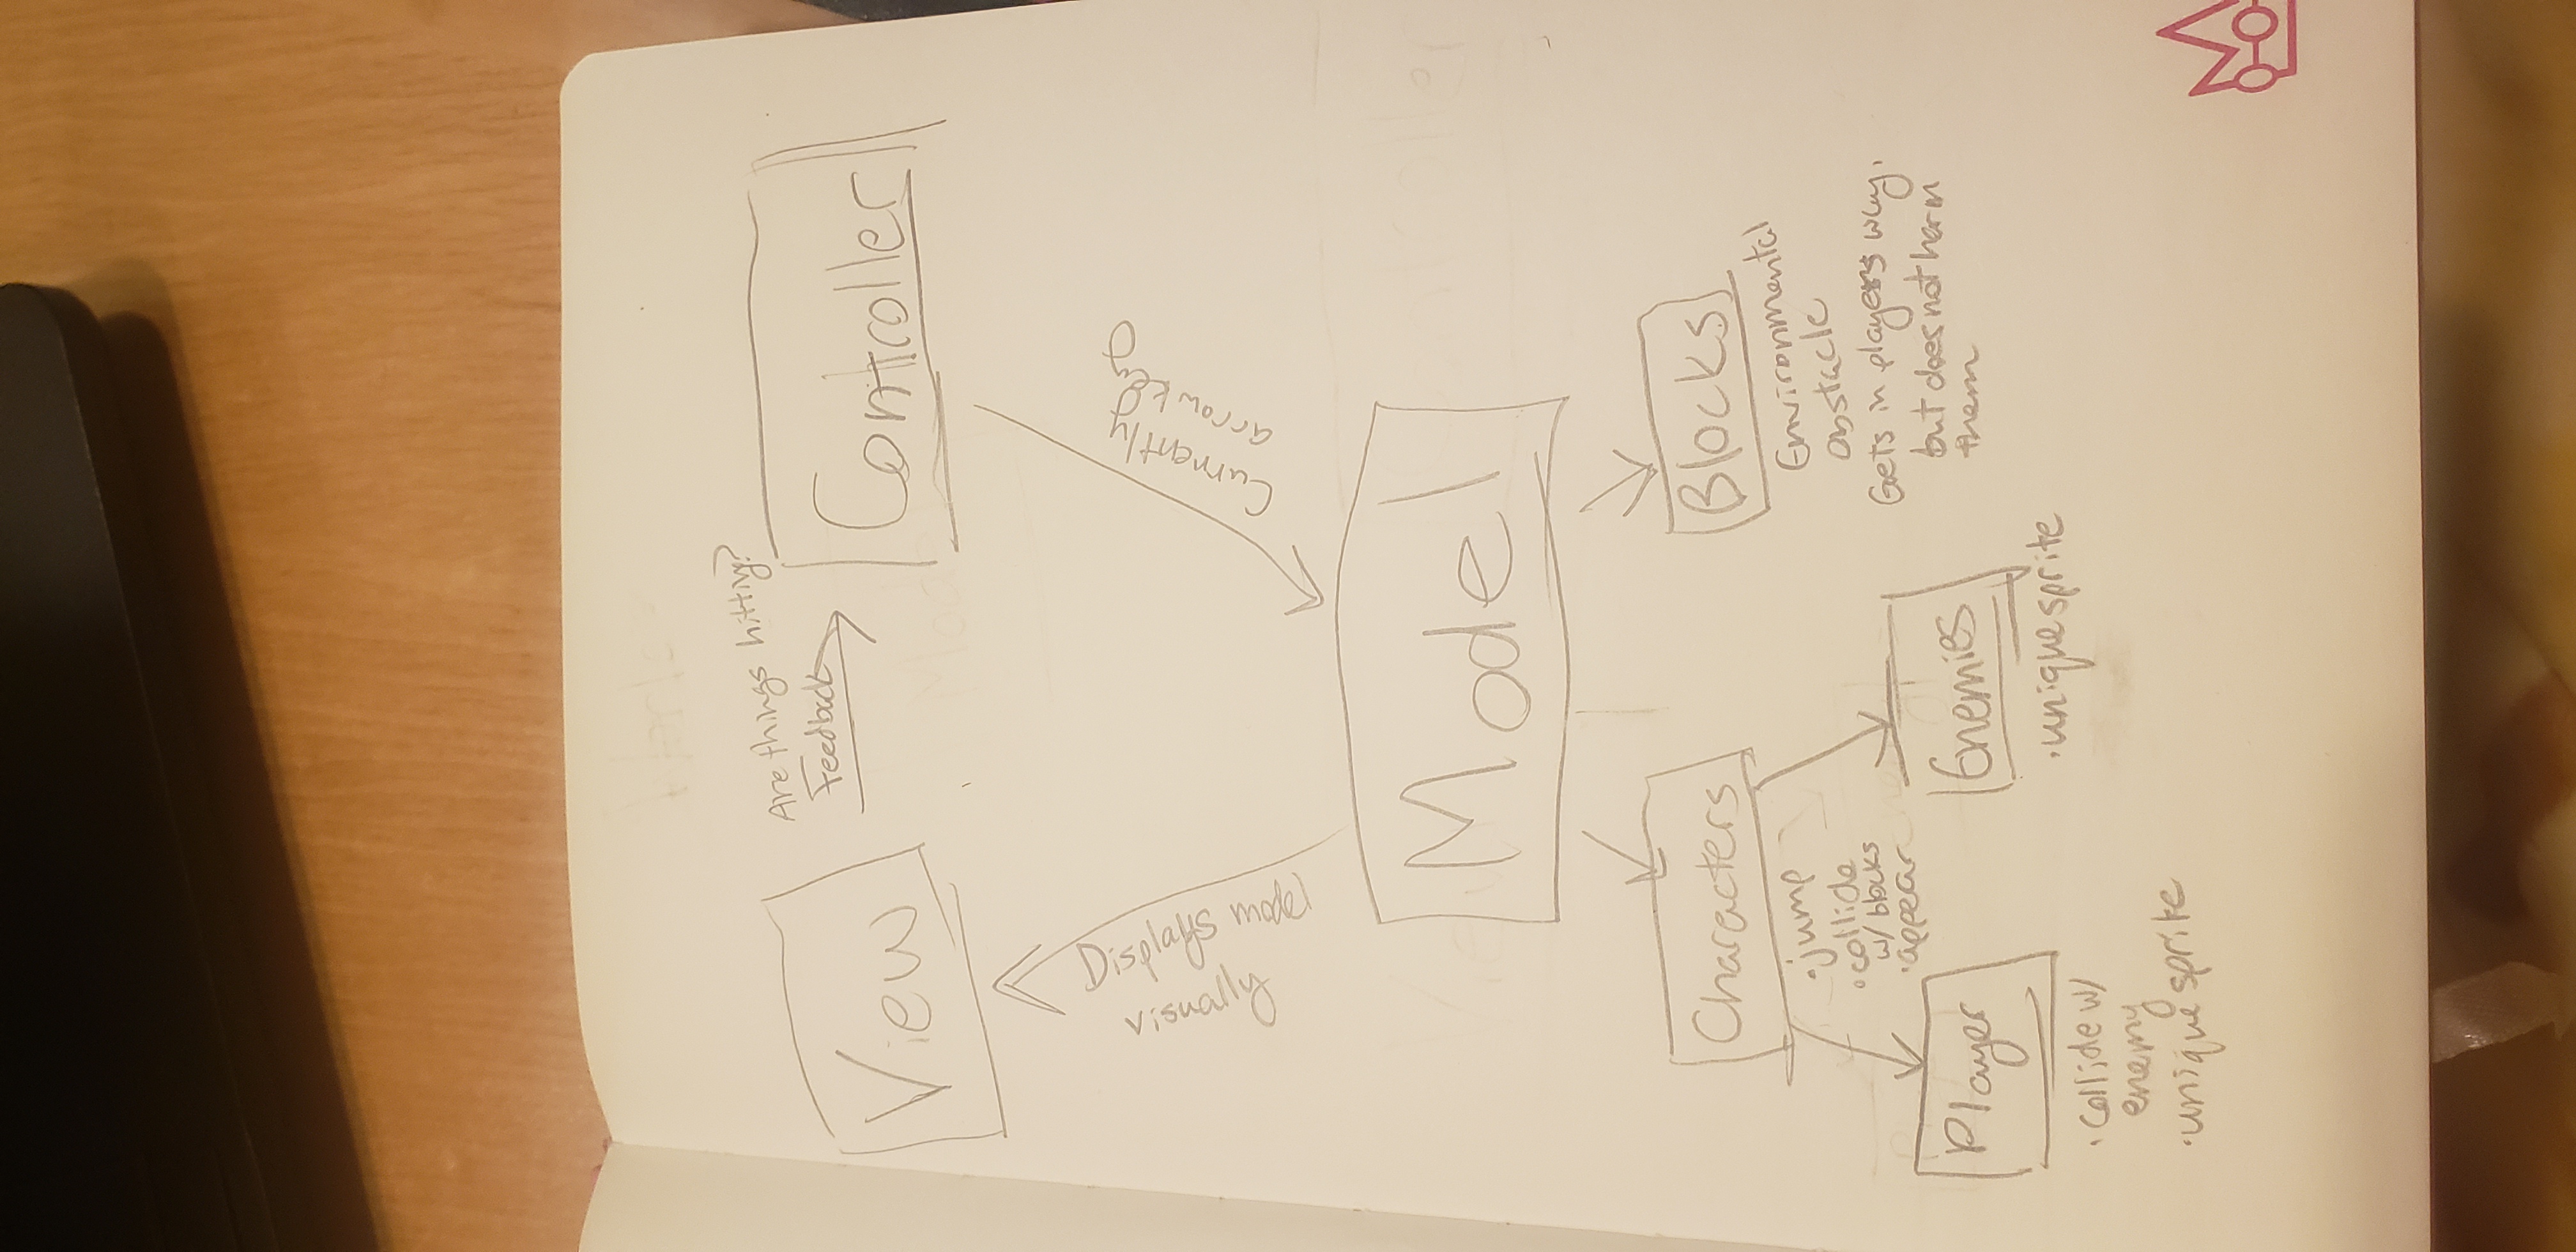 Are things hitting?
Feedback
View
Controller
Displays model
visually
Currently
arrow key
Model
Characters
Blocks
• jump
• collide
w/ blocks
• appear
Environmental
obstacle
Gets in players way,
but does not harm
them
Player
Enemies
• collide w/
enemy
• unique sprite
• unique sprite